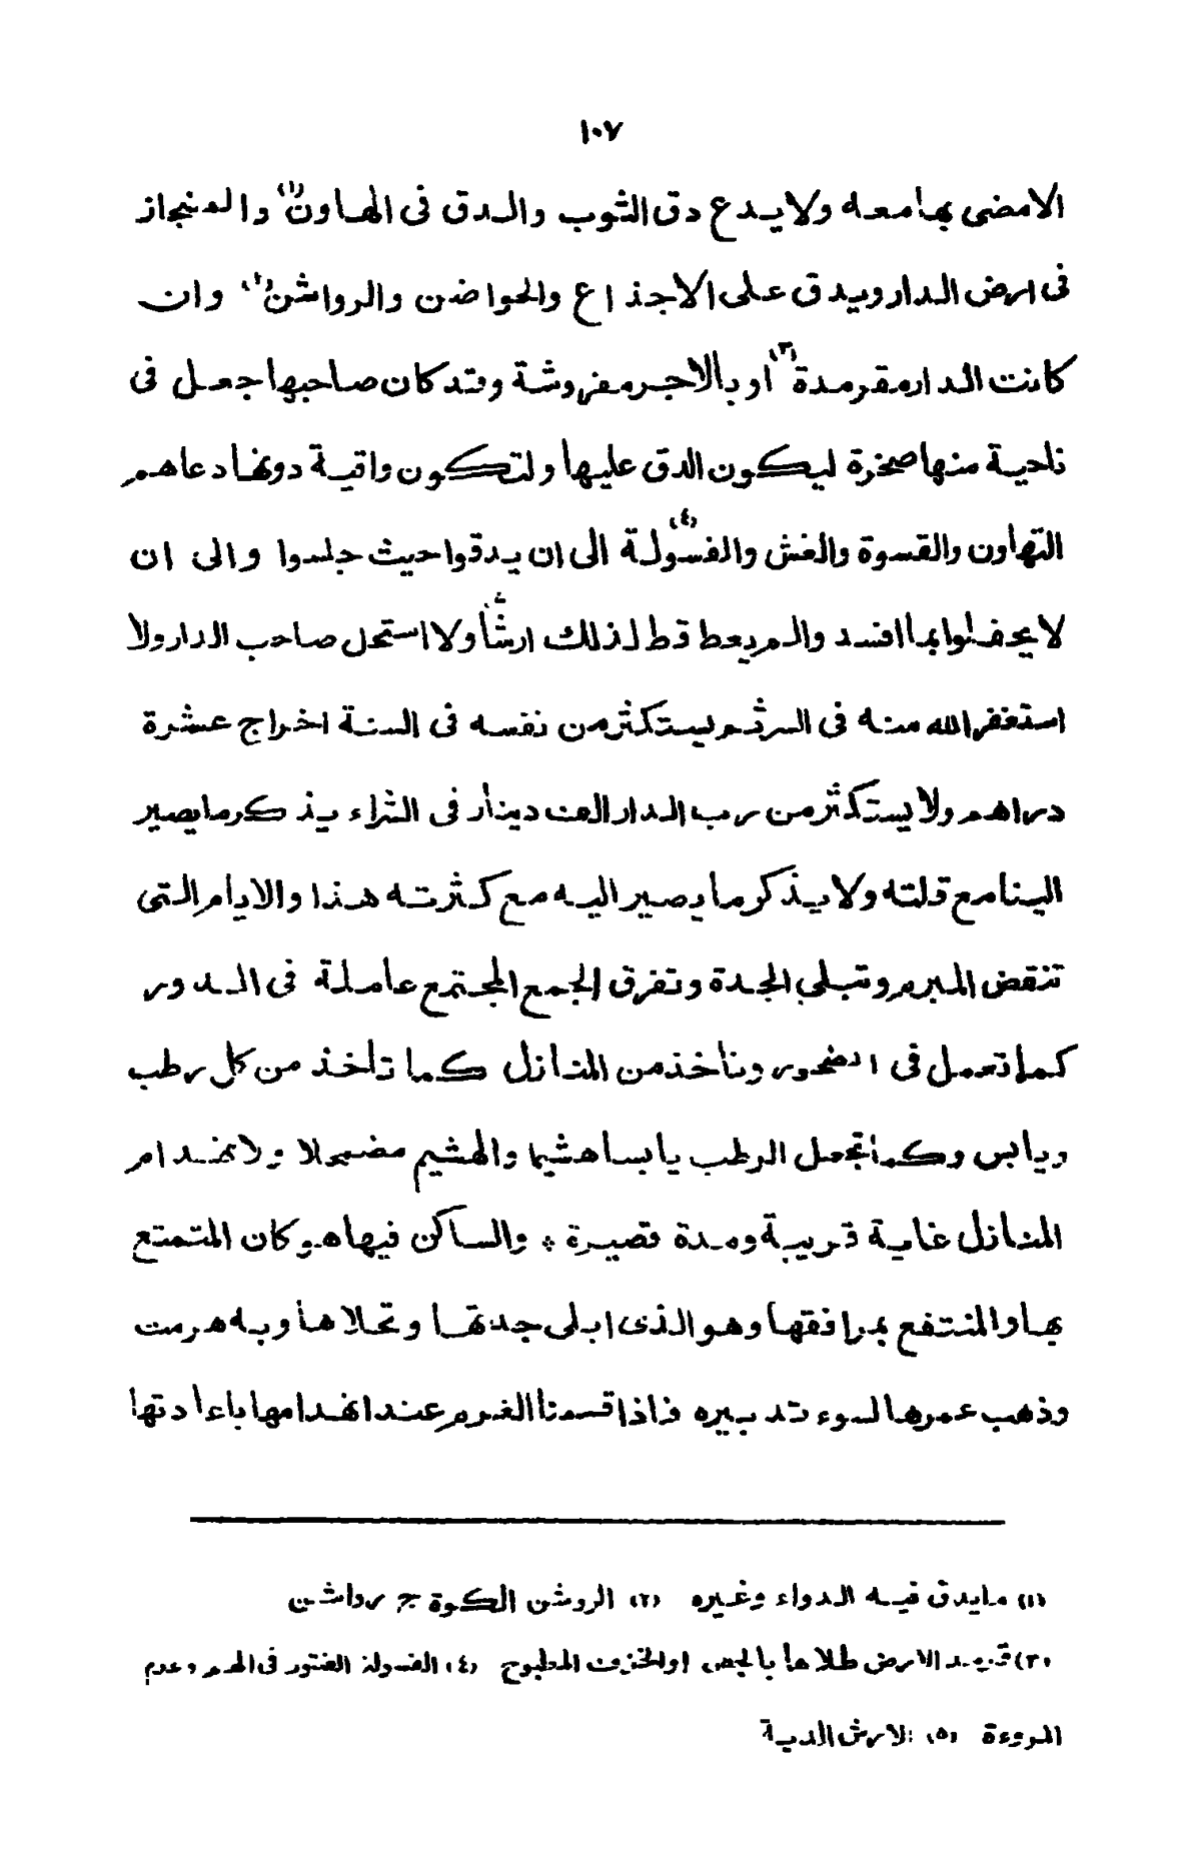 ١٠٧
الامضى بها معه ولا يدع دق الثوب والدق فى الهاون (١) والمنجاز
فى ارض الدار ويدق على الاجذاع والحواضن والرواشن (٢) وان
كانت الدار مقرمدة (٣) او بالآجر مفروشة وقد كان صاحبها جعل فى
ناحية منها صخرة ليكون الدق عليها ولتكون واقية دونها دعاهم
التهاون والقسوة والغش والفسولة (٤) الى ان يدقوا حيث جلسوا والى ان
لا يحفلوا بما افسدوا لم يعط قط لذلك ارشاً ولا استحل صاحب الدار ولا
استغفر الله منه فى السر ثم يستكثر من نفسه فى السنة اخراج عشرة
دراهم ولا يستكثر من رب الدار الف دينار فى الشراء يذكر ما يصير
الينا مع قلته ولا يذكر ما يصير اليه مع كثرته هذا والايام التى
تنقض المبرم وتبلى الجدة وتفرق الجمع المجتمع عاملة فى الدور
كما تعمل فى الصخور وتأخذ من المنازل كما تأخذ من كل رطب
ويابس وكما تجعل الرطب يابسا هشيما والهشيم مضمحلا ولانهدام
المنازل غاية قريبة ومدة قصيرة * والساكن فيها هو كان المتمتع
بها والمنتفع بمرافقها وهو الذى ابلى جدتها وتحلاها وبه هرمت
وذهب عمرها لسوء تدبيره فاذا قسمنا الغرم عند انهدامها باعادتها
(١) ما يدق فيه الدواء وغيره (٢) الروشن الكوة ج رواشن
(٣) قرمد الارض طلاها بالجص او الخزف المطبوخ (٤) الفسولة الفتور فى الهم وعدم
المروءة (٥) الارش الدية